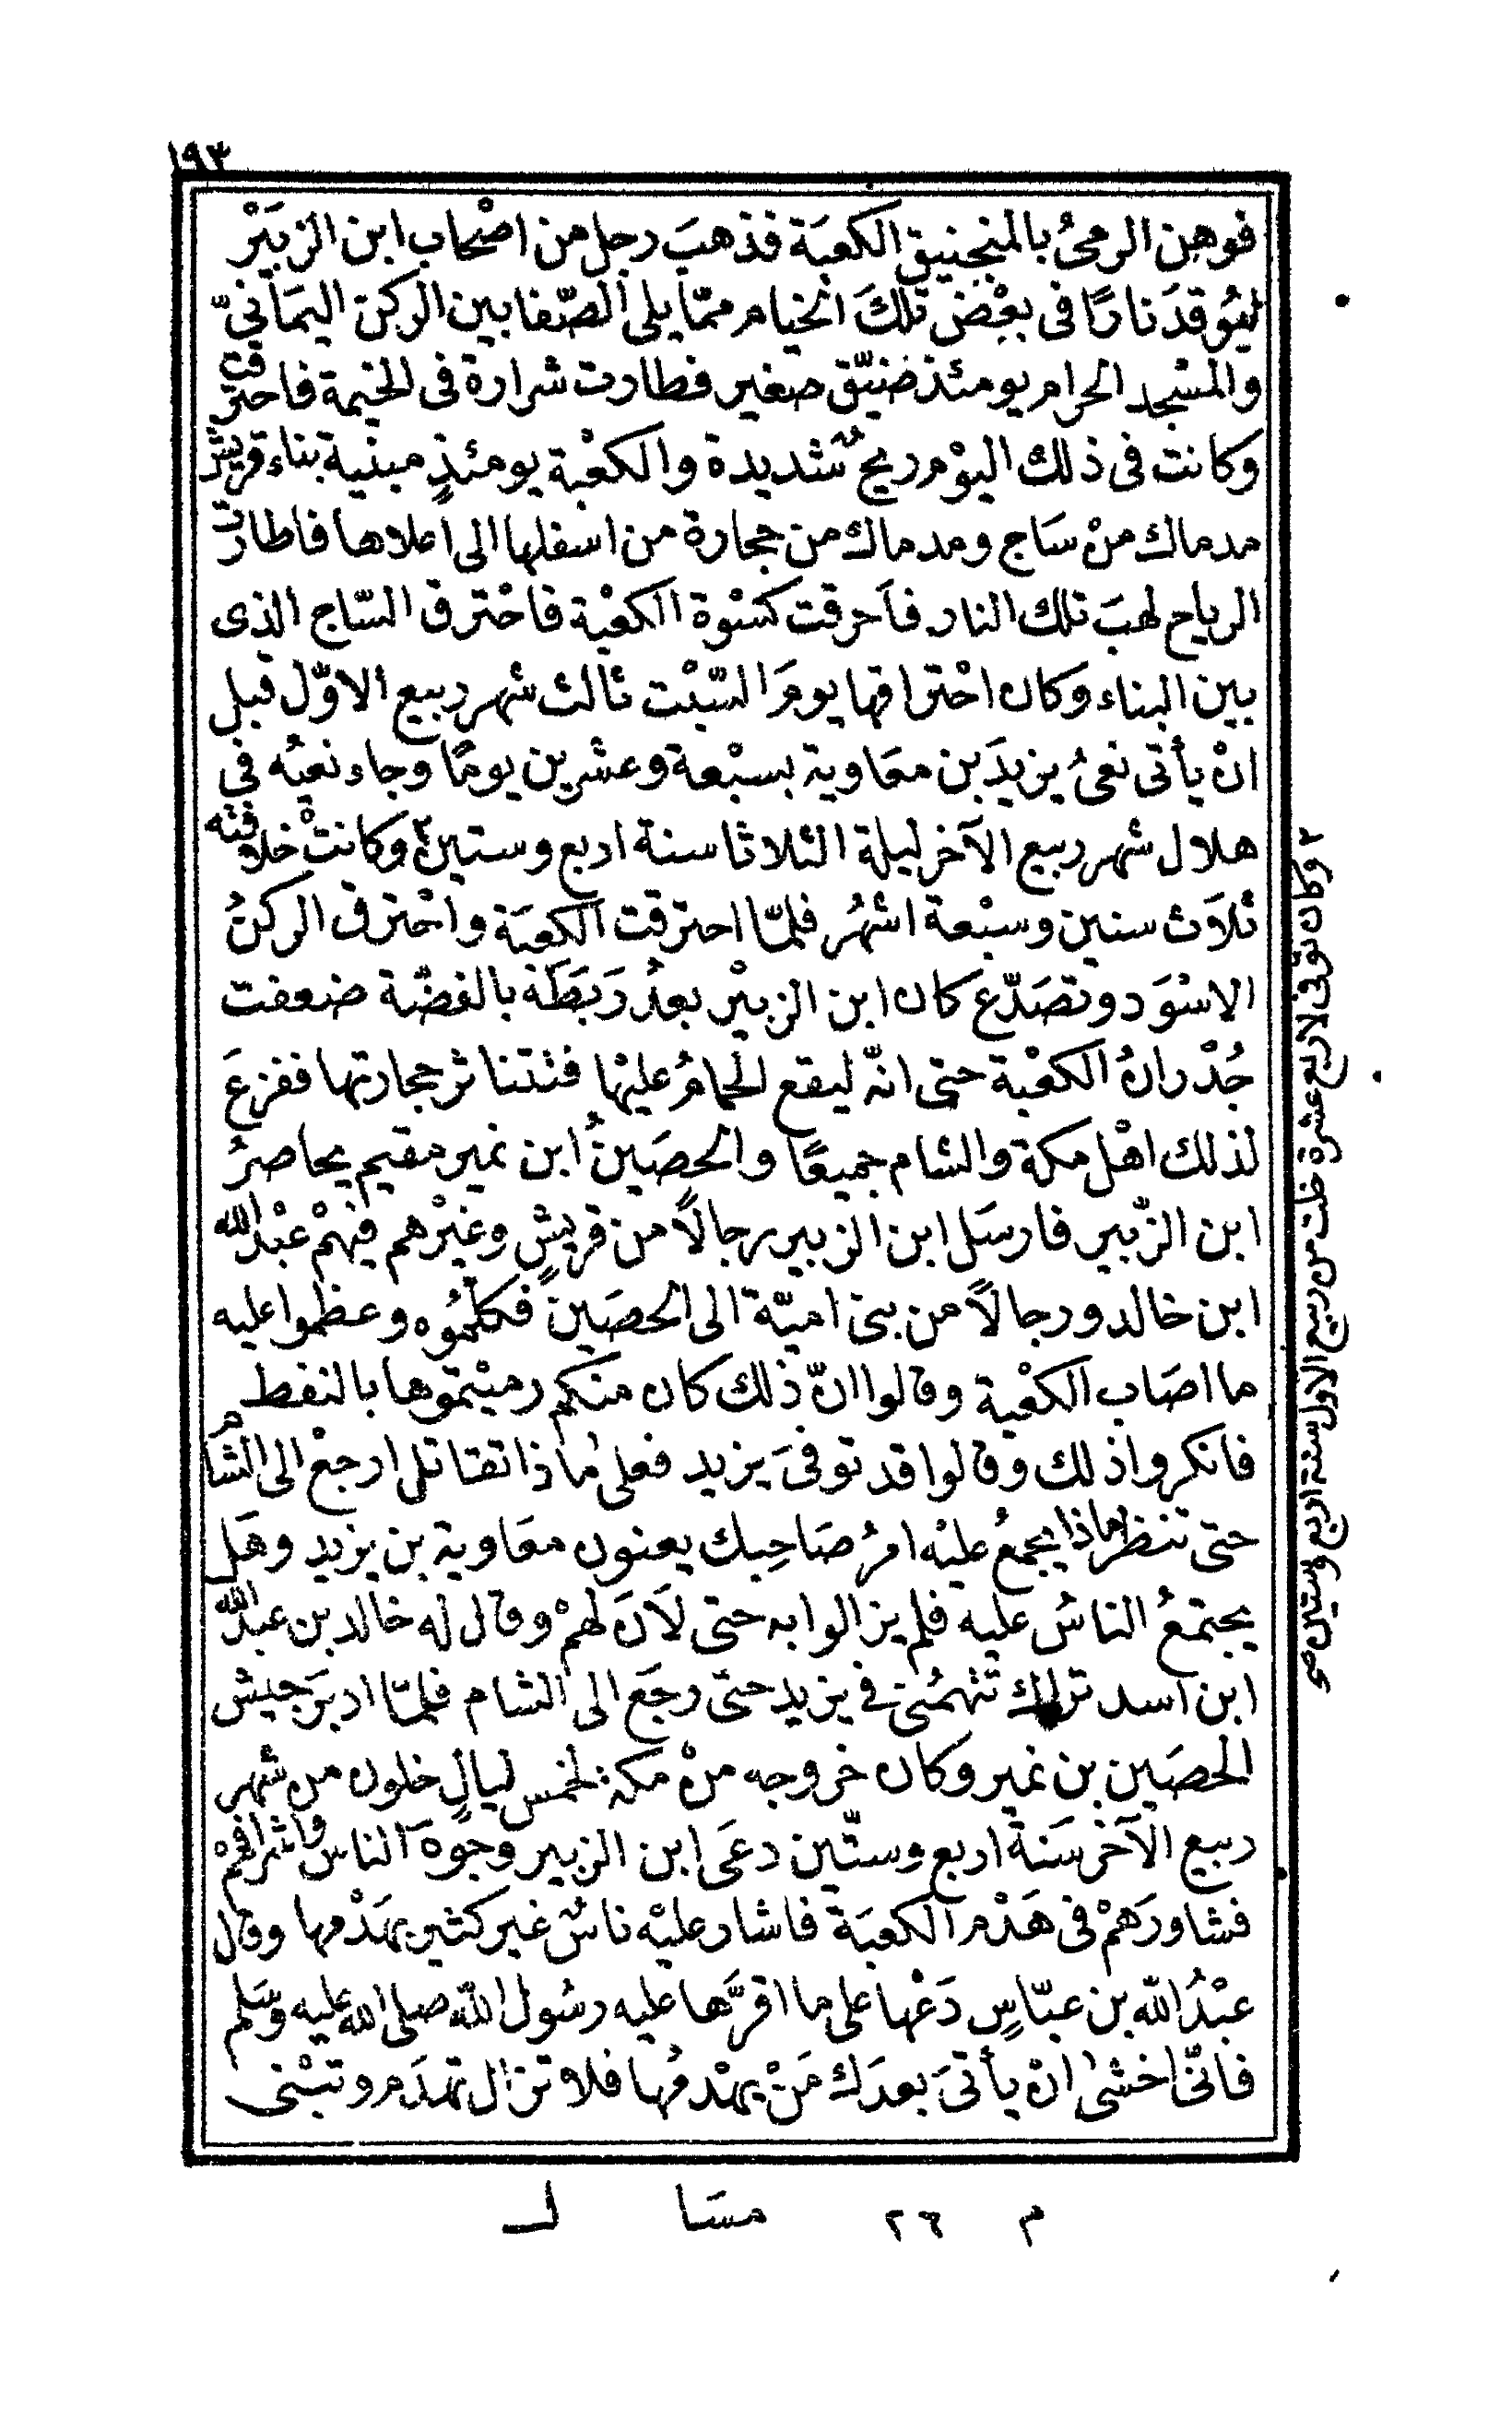 ١٩٣
فوهن الرمىُ بالمنجنيق الكعبَة فذهبَ رجل من اصْحاب ابن الزبَيْر
ليُوقدَ نارًا فى بعْض تلكَ الخيام ممّا يلى الصّفا بين الركن اليمَانىّ
والمسْجد الحرام يومئذ ضيّق صغير فطارت شرارة فى الخيمة فاحترقت
وكانت فى ذلك اليوْم ريحٌ شديدة والكعْبة يومئذٍ مبنية بناء قريش
مدماك منْ سَاج ومدماك من حجارة من اسفلها الى اعلاها فاطارت
الرياح لهبَ تلك النار فاَحرقت كسْوة الكعْبة فاحْترق السّاج الذى
بين البناء وكان احْتراقها يومَ السّبْت ثالث شهر ربيع الاوّل قبل
انْ يأتى نعىُ يزيدَ بن معَاوية بسبْعة وعشرين يومًا وجاء نعيُه فى
هلال شهر ربيع الآخر ليلة الثلاثا سنة اربع وستين ٢ وكانتْ خلافته
ثلاَث سنين وسبْعة اشهُر فلمّا احترقت الكعبَة واحْترق الركنُ
الاسْوَد وتصَدّع كان ابن الزبيْر بعدُ رَبَطَهُ بالفضّة ضعفت
جُدْرانُ الكعْبة حتى انّه ليقع الحمامُ عليْها فتتناثر حجارتها ففزعَ
لذلك اهْل مكة والشام جميعًا والحصَينُ ابن نمير مقيم يحاصرُ
ابن الزّبير فارسَل ابن الزبير رجالاً من قريشٍ وغيْرهم فيهمْ عبْد الله
ابن خالد ورجالاً من بنى اميّة الى الحصَين فكلّمُوه وعظموا عليه
ما اصَاب الكعْبة وقالوا انّ ذلك كان منكم رميْتموها بالنفط
فانكروا ذلك وقالوا قد توفىَ يزيد فعلى ماذا تقاتل ارجعْ الى الشامُ
حتى تنظر ماذا يجمعُ عليْه امرُ صَاحِبك يعنون معَاوية بن يزيد وهَل
يجتمعُ الناسُ عليه فلم يزالوا به حتى لاَنَ لهمْ وقال له خالد بن عبد الله
ابن اسد تراك تتهمُنى فى يزيد حتى رجَع الى الشام فلمّا ادبرَ جيش
الحصَين بن نمير وكان خروجه منْ مكة لخمس ليالٍ خلون من شهر
ربيع الآخر سَنة اربع وستّين دعَى ابن الزبير وجوهَ الناس واشرافهمْ
فشاورَهمْ فى هَدْم الكعبَة فاشار عليْه ناسٌ غير كثير بهَدْمها وقال
عبْدُ الله بن عبّاسٍ دَعْها على ما اقرَّها عليه رسُول الله صلى الله عليه وسَلم
فانّى اخشى انْ يأتىَ بعدَك مَنْ يهْدمُها فلا تزال تهدَم وتبْنى
٢ وكان توفى لاربع عشرة خلت من ربيع الاول سنة اربع وستين صح
م ٢٦ مسَا لـ